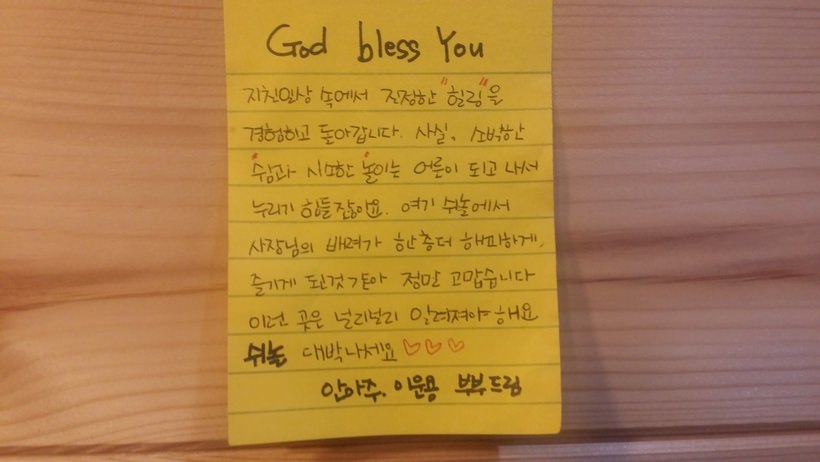 God bless You
지친일상 속에서 진정한 "힐링"을
경험하고 돌아갑니다. 사실, 소박한
"쉼과 시끄한 놀이는 어른이 되고 나서
누리기 힘들잖아요. 여기 쉬놀에서
사장님의 배려가 한층더 해피하게,
즐기게 된것 같아 정말 고맙습니다
이런 곳은 널리널리 알려져야 해요
쉬놀 대박나세요 ♡♡♡
안아주, 이운용 부부드림